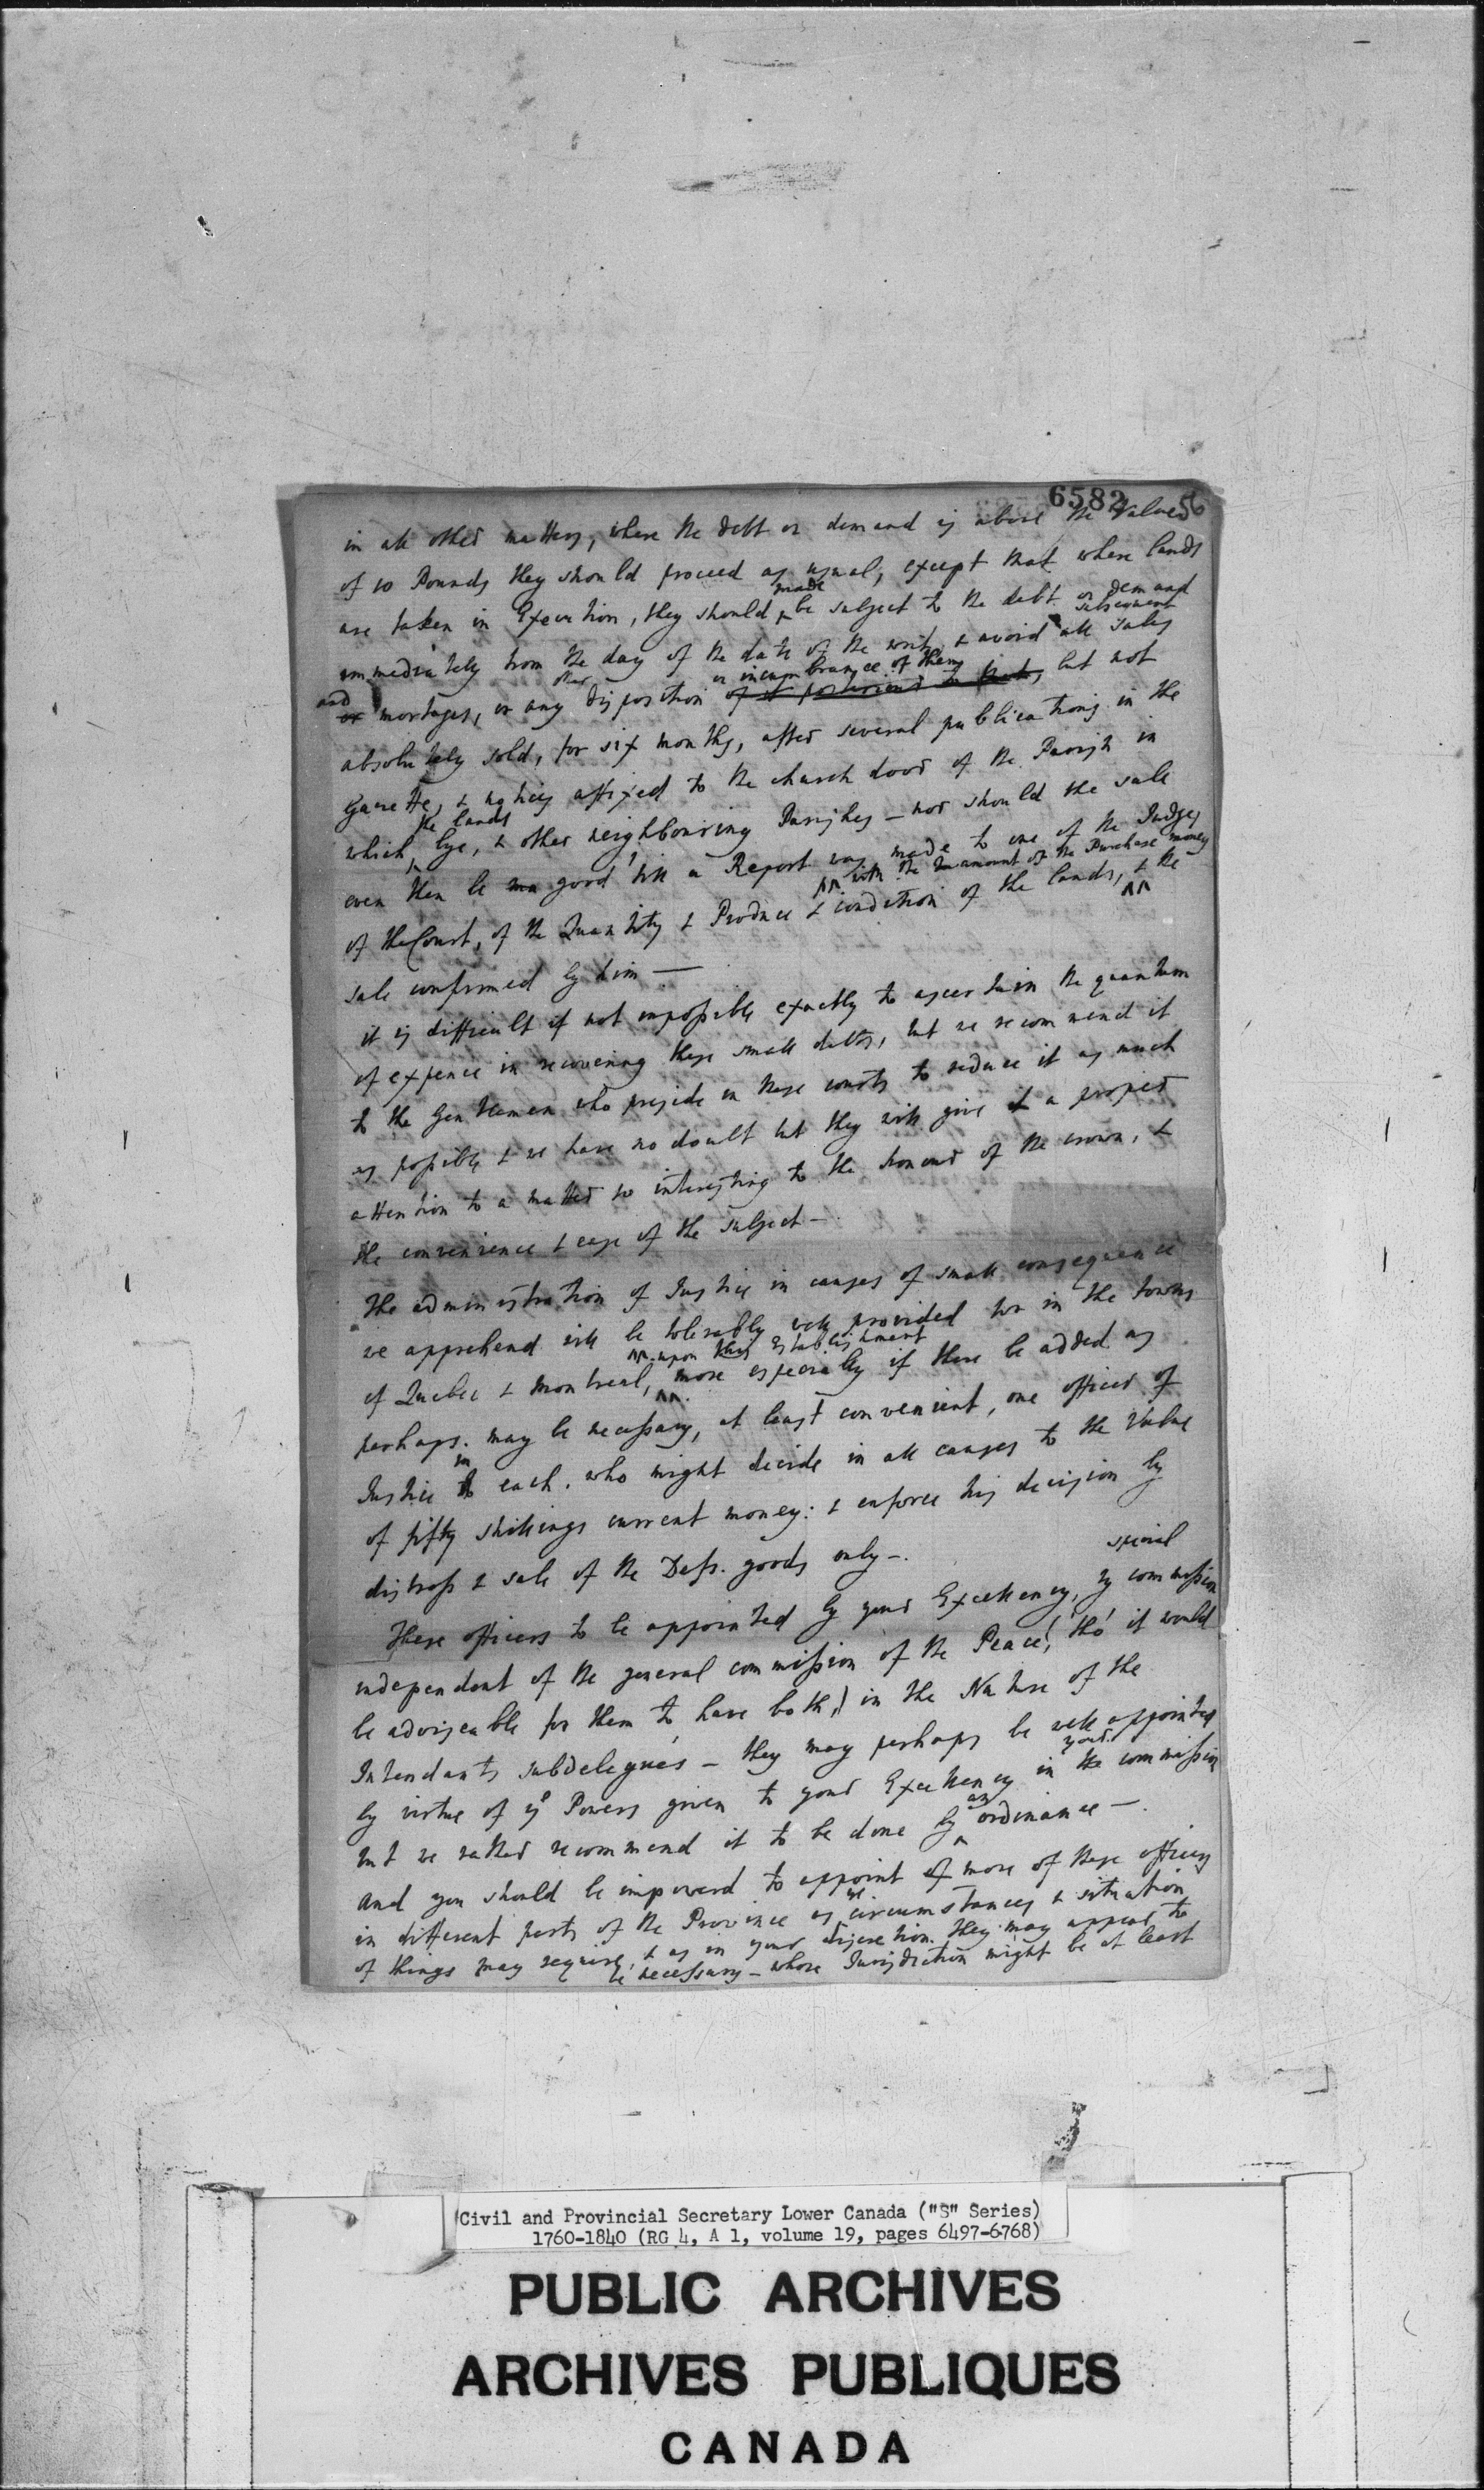 6582 56
in all other matters, where the debt or demand is above the Value
of 10 Pounds they should proceed as usual, except that where lands
are taken in Execution, they should made be subject to the debt or demand
immediately from the day of the date of the writ, & avoid all subsequent sales
and mortages, or any other disposition or incumbrance of them but not
absolutely sold, for six months, after several publications in the
Gazette, & notices affixed to the church door of the Parish in
which the lands lye, & other neighbouring Parishes – nor should the sale
even then be good till a Report was made to one of the Judges
with the amount of the Purchase money
of the Court, of the Quantity & Produce & condition of the lands, & the
sale confirmed by him —
it is difficult if not impossible exactly to ascertain the quantum
of expence in recovering these small debts, but we recommend it
to the Gentlemen who preside in these courts to reduce it as much
as possible & we have no doubt but they will give a proper
attention to a matter so interesting to the honour of the crown, &
the convenience & ease of the subject –
The administration of Justice in causes of small consequence
we apprehend will be tolerably well provided for in the towns
upon this establishment
of Quebec & montreal, more especially if there be added as
perhaps may be necessary, at least convenient, one officer of
Justice in each. who might decide in all causes to the Value
of fifty shillings current money: & enforce his decision by
distress & sale of the Defs. goods only –.
special
These officers to be appointed by your Excellency, by commission
independent of the general commission of the Peace, (tho' it would
be adviseable for them to have both,) in the Nature of the
Intendants subdelegués – they may perhaps be well appointed
by virtue of ye Powers given to your Excellency in your commission
but we rather recommend it to be done by an ordinance –.
and you should be impowerd to appoint more of these officers
in different parts of the Province as ye circumstances & situation
of things may require, & as in your discretion they may appear to
be necessary – whose Jurisdiction might be at least
Civil and Provincial Secretary Lower Canada ("S" Series)
1760-1840 (RG 4, A 1, volume 19, pages 6497-6768)
PUBLIC ARCHIVES
ARCHIVES PUBLIQUES
CANADA